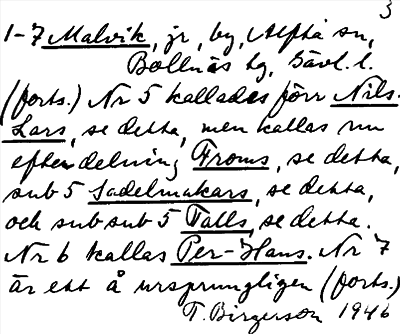 3
1-7 Malvik, jr, by, Alfta sn,
Bollnäs tg, Gävl. l.
(forts.) Nr 5 kallades förr Nils-
Lars, se detta, men kallas nu
efter delning Froms, se detta,
sub 5 Sadelmakars, se detta,
och subsub 5 Talls, se detta.
Nr 6 kallas Per-Hans. Nr 7
är ett å ursprungligen (forts.)
T. Birgerson 1946